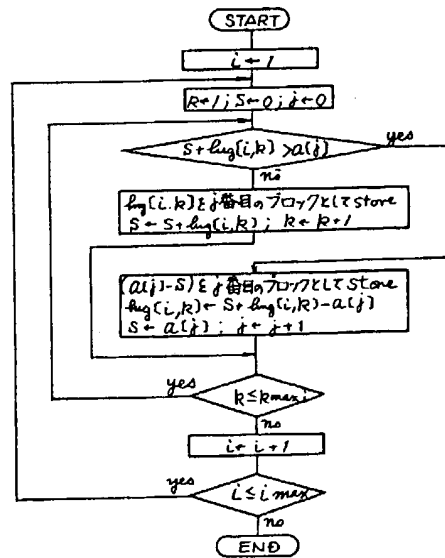 START
i ← 1
k←1; S←0; j←0
S + lug[i,k] > a[j]
yes
no
lug[i.k]をj番目のブロックとしてstore
S ← S + lug[i,k); k ← k+1
(a[j]-S)をj番目のブロックとしてstore
lug[i,k] ← S + lug[i,k] - a[j]
S ← a[j]; j ← j+1
yes
k ≤ kmax i
no
i ← i+1
yes
i ≤ i max
no
END